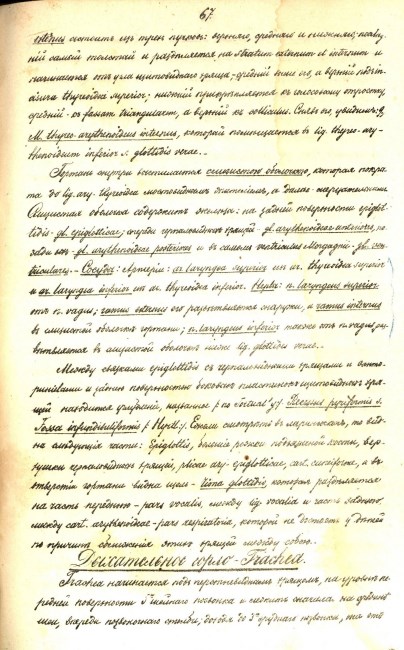 67.
состоитъ изъ трехъ пучковъ: верхняго, средняго и нижняго; послѣд-
ній самый толстый и раздѣляется на stratum externum et internum и
начинается отъ угла щитовиднаго хряща; средній выше его, а верхній
thyreoidea superior; нижній прикрѣпляется къ голосовому отростку,
средній - къ foveat triangularis, а верхній къ colliculus. Снявъ его, увидимъ:
M. thyreo-arythenoideus internus, который помѣщается въ lig. thyreo-ary-
thenoideum inferior s. glottidis verae.
Гортань внутри выстилается слизистою оболочкою, которая покры-
та до lig. ary-thyreoidea многослойнымъ эпителіемъ, а далѣе мерцательнымъ.
Слизистая оболочка содержитъ железы: на задней поверхности epiglot-
tidis - gl. epiglotticae; спереди черпаловидныхъ хрящей - gl. arythenoideae anteriores, по-
зади ихъ - gl. arythenoideae posteriores и въ самомъ ventriculus Morgagnii - gl. ven-
triculares. Сосуды: артеріи: ar. laryngea superior изъ ar. thyreoidea superior
и ar. laryngea inferior изъ ar. thyreoidea inferior. Нервы: n. laryngeus superior
отъ n. vagus; ramus externus его развѣтвляется снаружи, а ramus internus
въ слизистой оболочкѣ гортани; n. laryngeus inferior также отъ n. vagus, раз-
вѣтвляется въ слизистой оболочкѣ ниже lig. glottidis verae.
Между связками epiglottidis съ черпаловидными хрящами и
и заднею поверхностью боковыхъ пластинокъ щитовиднаго хря-
ща находится углубленіе, названное по Tortual'у Recessus pyriformis s.
Fossa infundibuliformis по Hyrtl'у. Если смотрѣть въ ларингоскопъ, то вид-
ны слѣдующія части: Epiglottis, большіе рожки подъязычной кости, вер-
хушки черпаловидныхъ хрящей, plicae ary-epiglotticae, cart. cuneiformae, а въ
отверстіи гортани видна щель - Rima glottidis, которая раздѣляется
на часть переднюю - pars vocalis, между lig. vocalia и часть заднюю,
между cart. arythenoideae - pars respiratoria, которой не достаетъ у дѣтей
по причинѣ сближенія этихъ хрящей между собою.
Дыхательное горло - Trachea.
Trachea начинается подъ перстневиднымъ хрящомъ, на уровнѣ пе-
редней поверхности 5го шейнаго позвонка и лежитъ сначала на
шеи, впереди позвоночнаго столба; доходя до 3го груднаго позвонка, она отъ